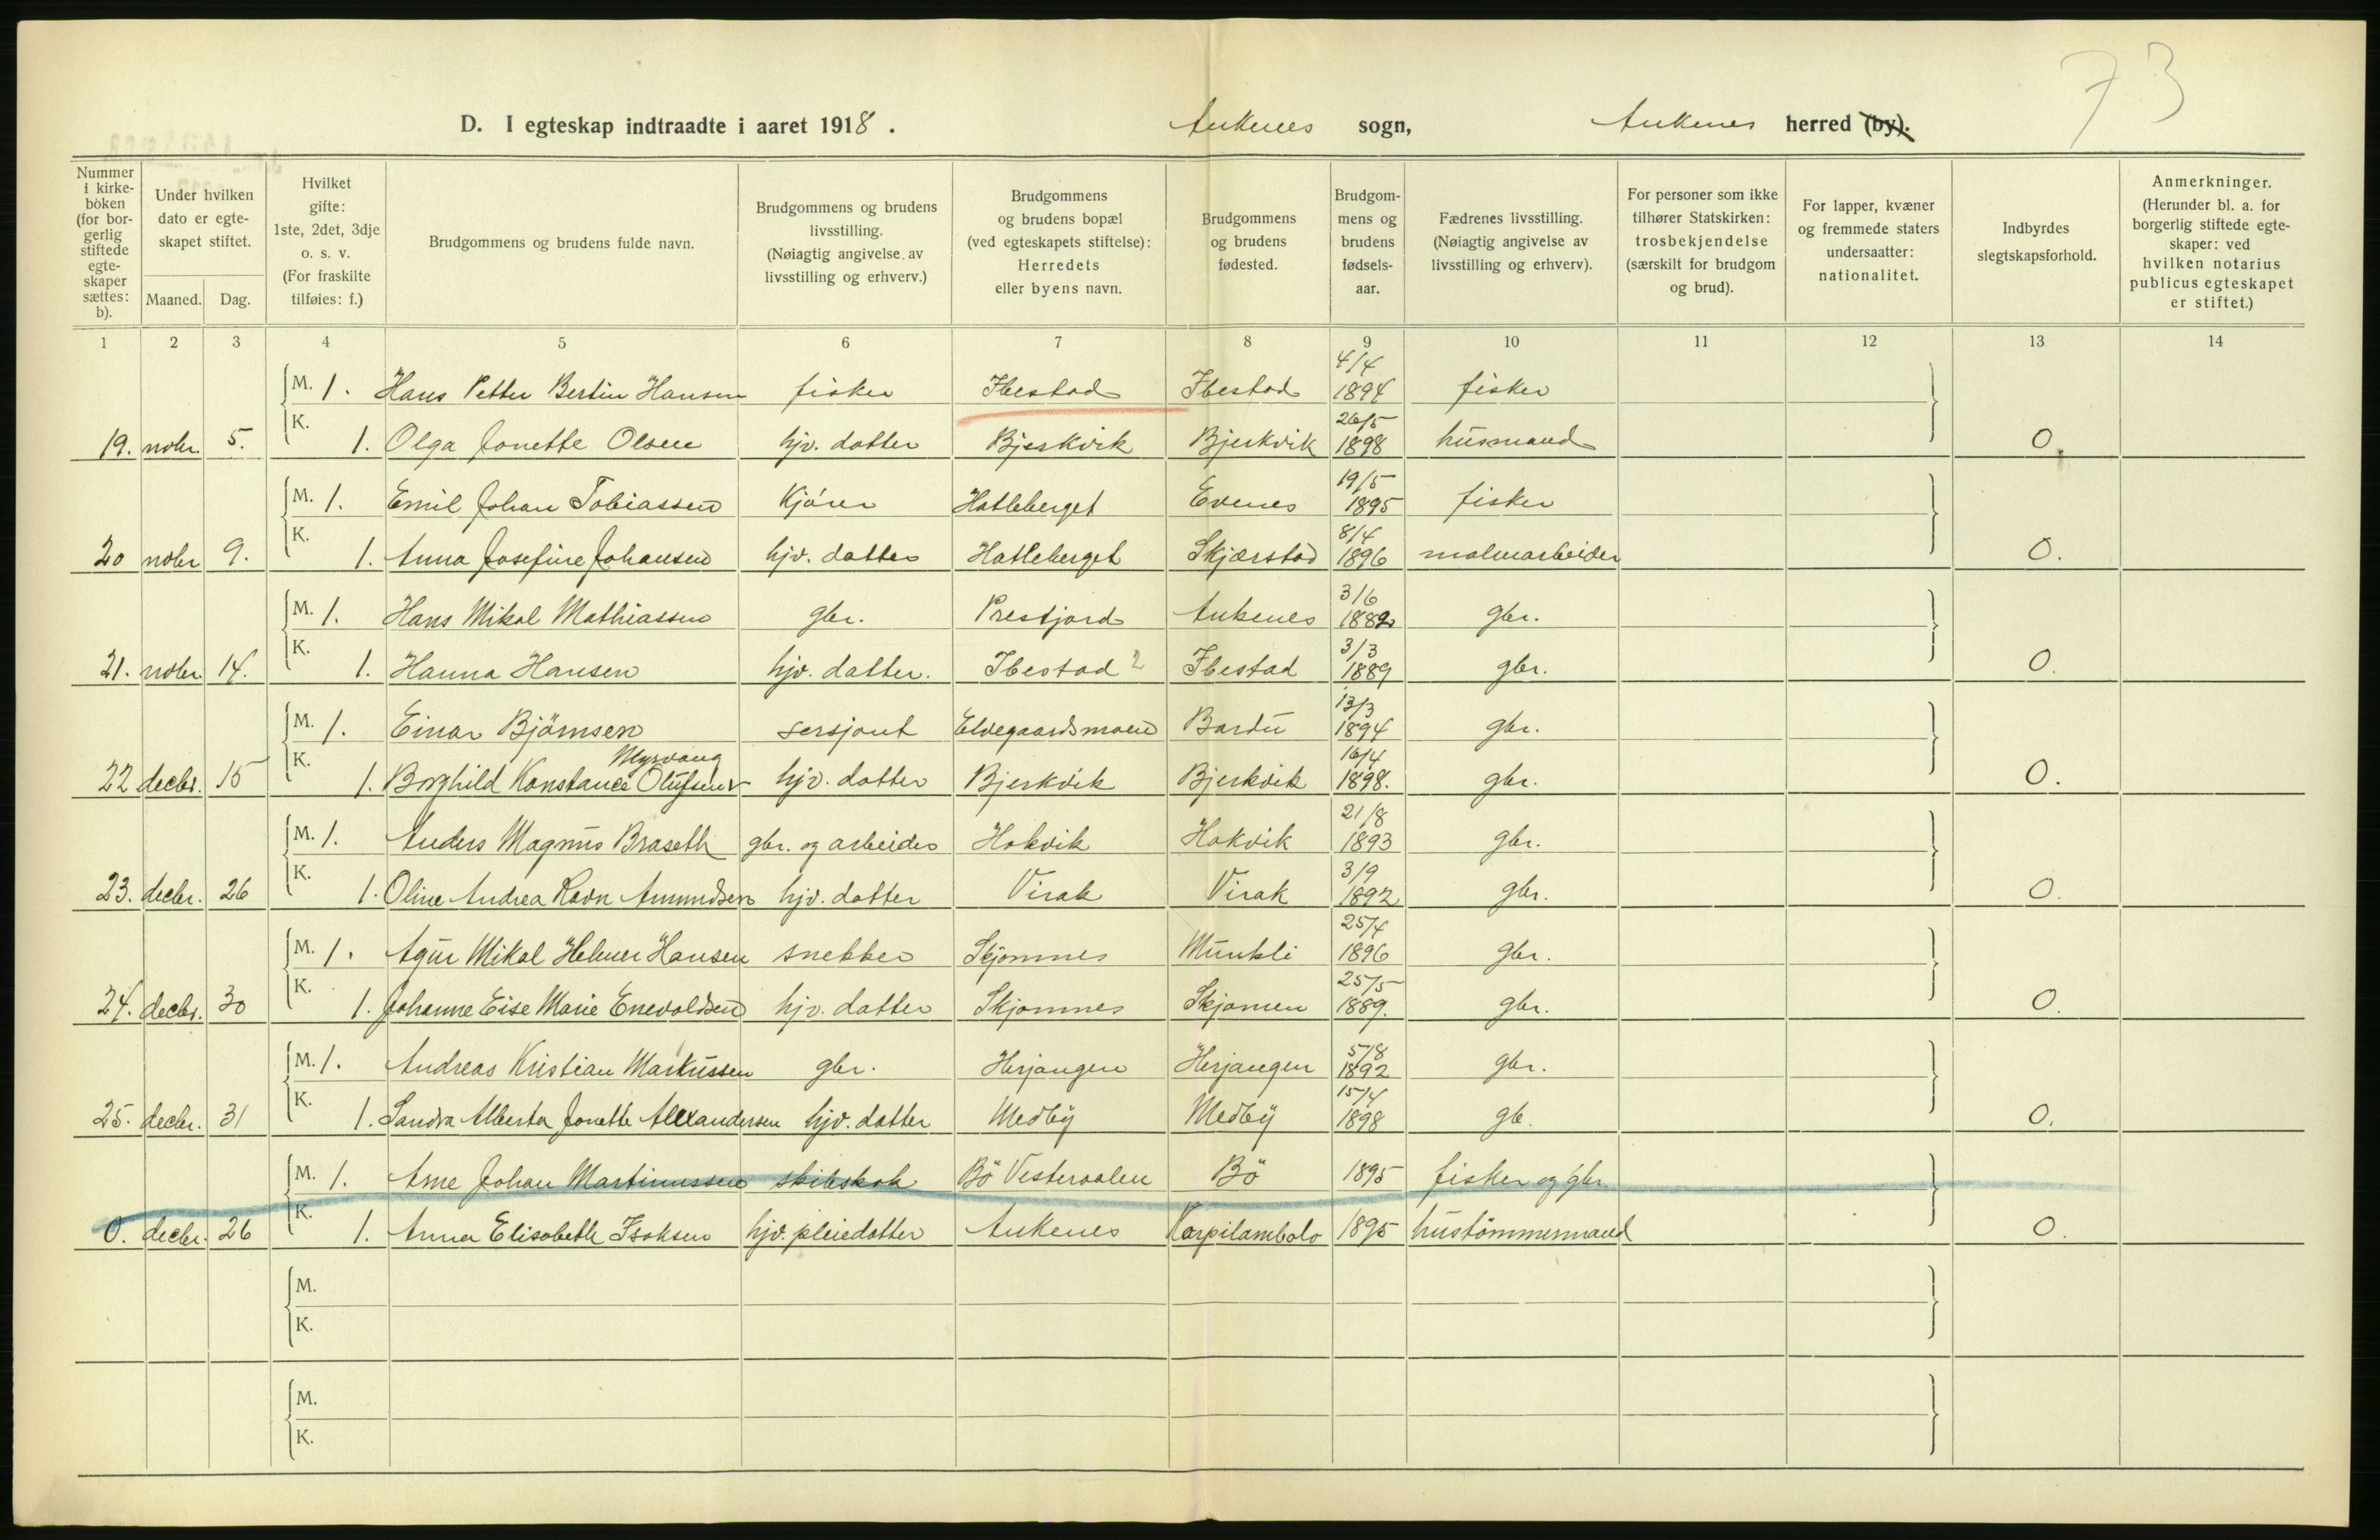 73
D. I egteskap indtraadte i aaret 1918. Ankenes sogn, Ankenes herred (by).
Nummer i kirkeboken (for borgerlig stiftede egteskaper sættes: b). Under hvilken dato er egteskapet stiftet. Maaned. Dag. Hvilket gifte: 1ste, 2det, 3dje o. s. v. (For fraskilte tilføies: f.) Brudgommens og brudens fulde navn. Brudgommens og brudens livsstilling. (Nøiagtig angivelse av livsstilling og erhverv.) Brudgommens og brudens bopæl (ved egteskapets stiftelse): Herredets eller byens navn. Brudgommens og brudens fødested. Brudgommens og brudens fødselsaar. Fædrenes livsstilling. (Nøiagtig angivelse av livsstilling og erhverv). For personer som ikke tilhører Statskirken: trosbekjendelse (særskilt for brudgom og brud). For lapper, kvæner og fremmede staters undersaatter: nationalitet. Indbyrdes slegtskapsforhold. Anmerkninger. (Herunder bl. a. for borgerlig stiftede egteskaper: ved hvilken notarius publicus egteskapet er stiftet.)
1 2 3 4 5 6 7 8 9 10 11 12 13 14
M. 1. Hans Petter Bertin Hansen fisker Ibestad Ibestad 4/4 1894 fisker
19. nobr. 5. K. 1. Olga Jonette Olsen hjv. datter Bjerkvik Bjerkvik 26/5 1898 husmand 0.
M. 1. Emil Johan Tobiassen Kjører Hatleberget Evenes 19/5 1895 fisker
20 nobr 9. K. 1. Anna Josefine Johansen hjv. datter Hatleberget Skjærstad 8/4 1896 malmarbeider 0.
M. 1. Hans Mikal Mathiassen gbr. Presfjord Ankenes 3/6 1882 gbr.
21. nobr. 14. K. 1. Hanna Hansen hjv. datter. Ibestad 2 Ibestad 3/3 1889 gbr. 0.
M. 1. Einar Björnsen sersjant Elvegaardsmoen Bardu 13/3 1894 gbr.
Myrvang
22 decbr. 15 K. 1. Borghild Konstance Olufsen hjv. datter Bjerkvik Bjerkvik 16/4 1898. gbr. 0.
M. 1. Anders Magnus Braseth gbr. og arbeider Hakvik Hakvik 21/8 1893 gbr.
23. decbr. 26 K. 1. Oline Andrea Ravn Amundsen hjv. datter Virak Virak 3/9 1892 gbr. 0.
M. 1. Agur Mikal Helmer Hansen snekker Skjomnes Munkli 25/4 1896 gbr.
24. decbr. 30 K. 1. Johanne Eise Marie Enevoldsen hjv. datter Skjomnes Skjomen 25/5 1889. gbr. 0.
M. 1. Andreas Kristian Markussen gbr. Herjangen Herjangen 5/8 1892 gbr.
25. decbr. 31 K. 1. Sandra Alberta Jonette Alexandersen hjv. datter Medby Medby 15/4 1898 gb. 0.
M. 1. Arne Johan Martinussen skibskok Bö Vesteraalen Bö 1895 fisker og gbr.
0. decbr. 26 K. 1. Anna Elisabeth Isaksen hjv. pleiedatter Ankenes Karpilambolo 1895 hustömmermand 0.
M.
K.
M.
K.